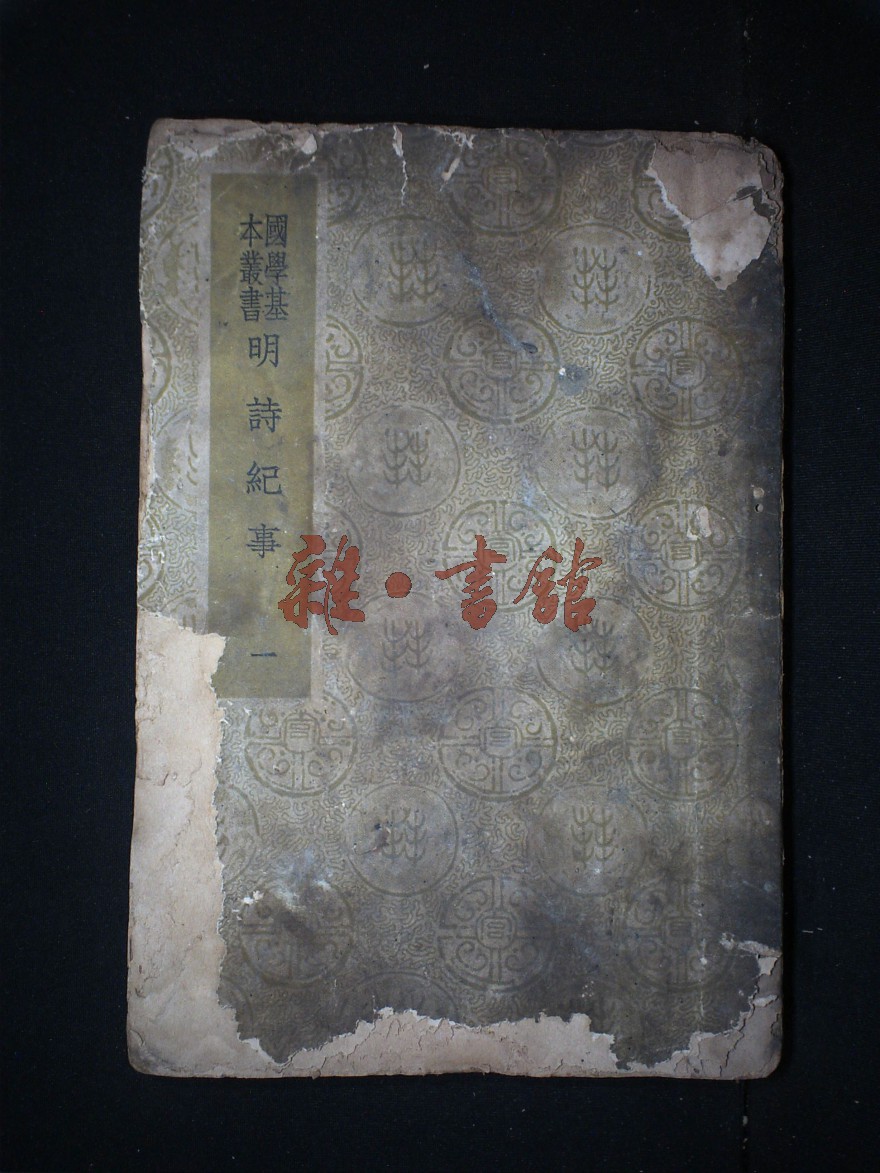 國學基
本叢書
明詩紀事
一
雜·書館